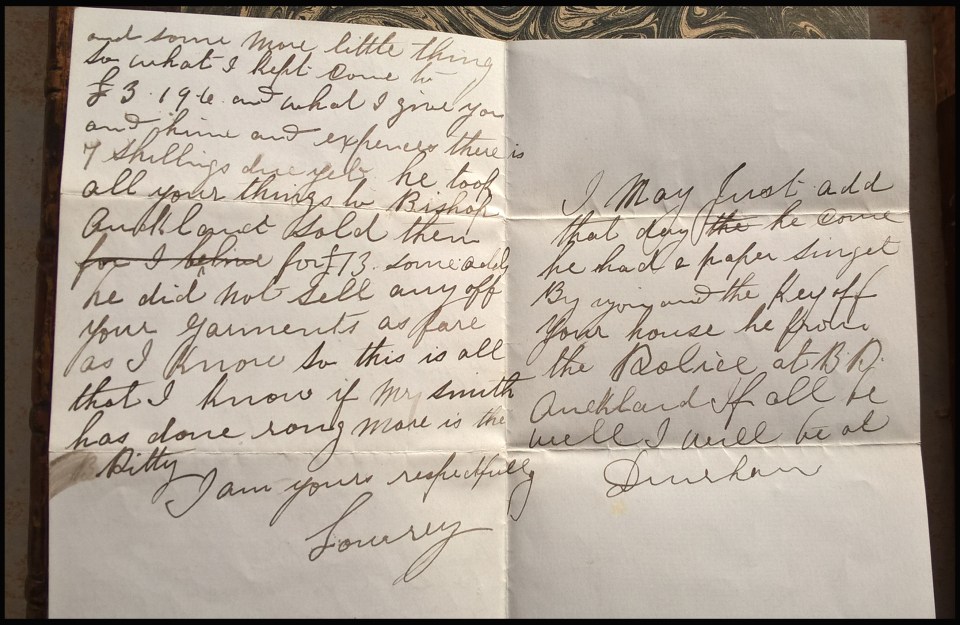 and some more little thing
so what I kept Come to
£3.19.6. and what I give you
and hime and expences there is
7 shillings due yelp he took
all your things to Bishop
Auckland sold them
for I beline for £13. some addy
he did not sell any off
your garments as fare
as I know so this is all
that I know if Mr smith
has done rong more is the
Pitty
I am yours respectfully
Lowrey
I May Just add
that day the he Come
he had a paper singet
By you and the Key off
your house he from
the Police at B.
Auckland If all be
well I will be at
Durham